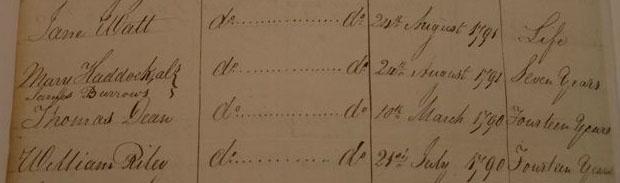 Jane Watt do ............ do 24th August 1791 Life
Mary Haddock, als} do ............ do 24th August 1791 Seven Years
James Burrows
Thomas Dean do ............ do 10th March 1790 Fourteen Years
William Riley do ............ do 21st July 1790 Fourteen Years